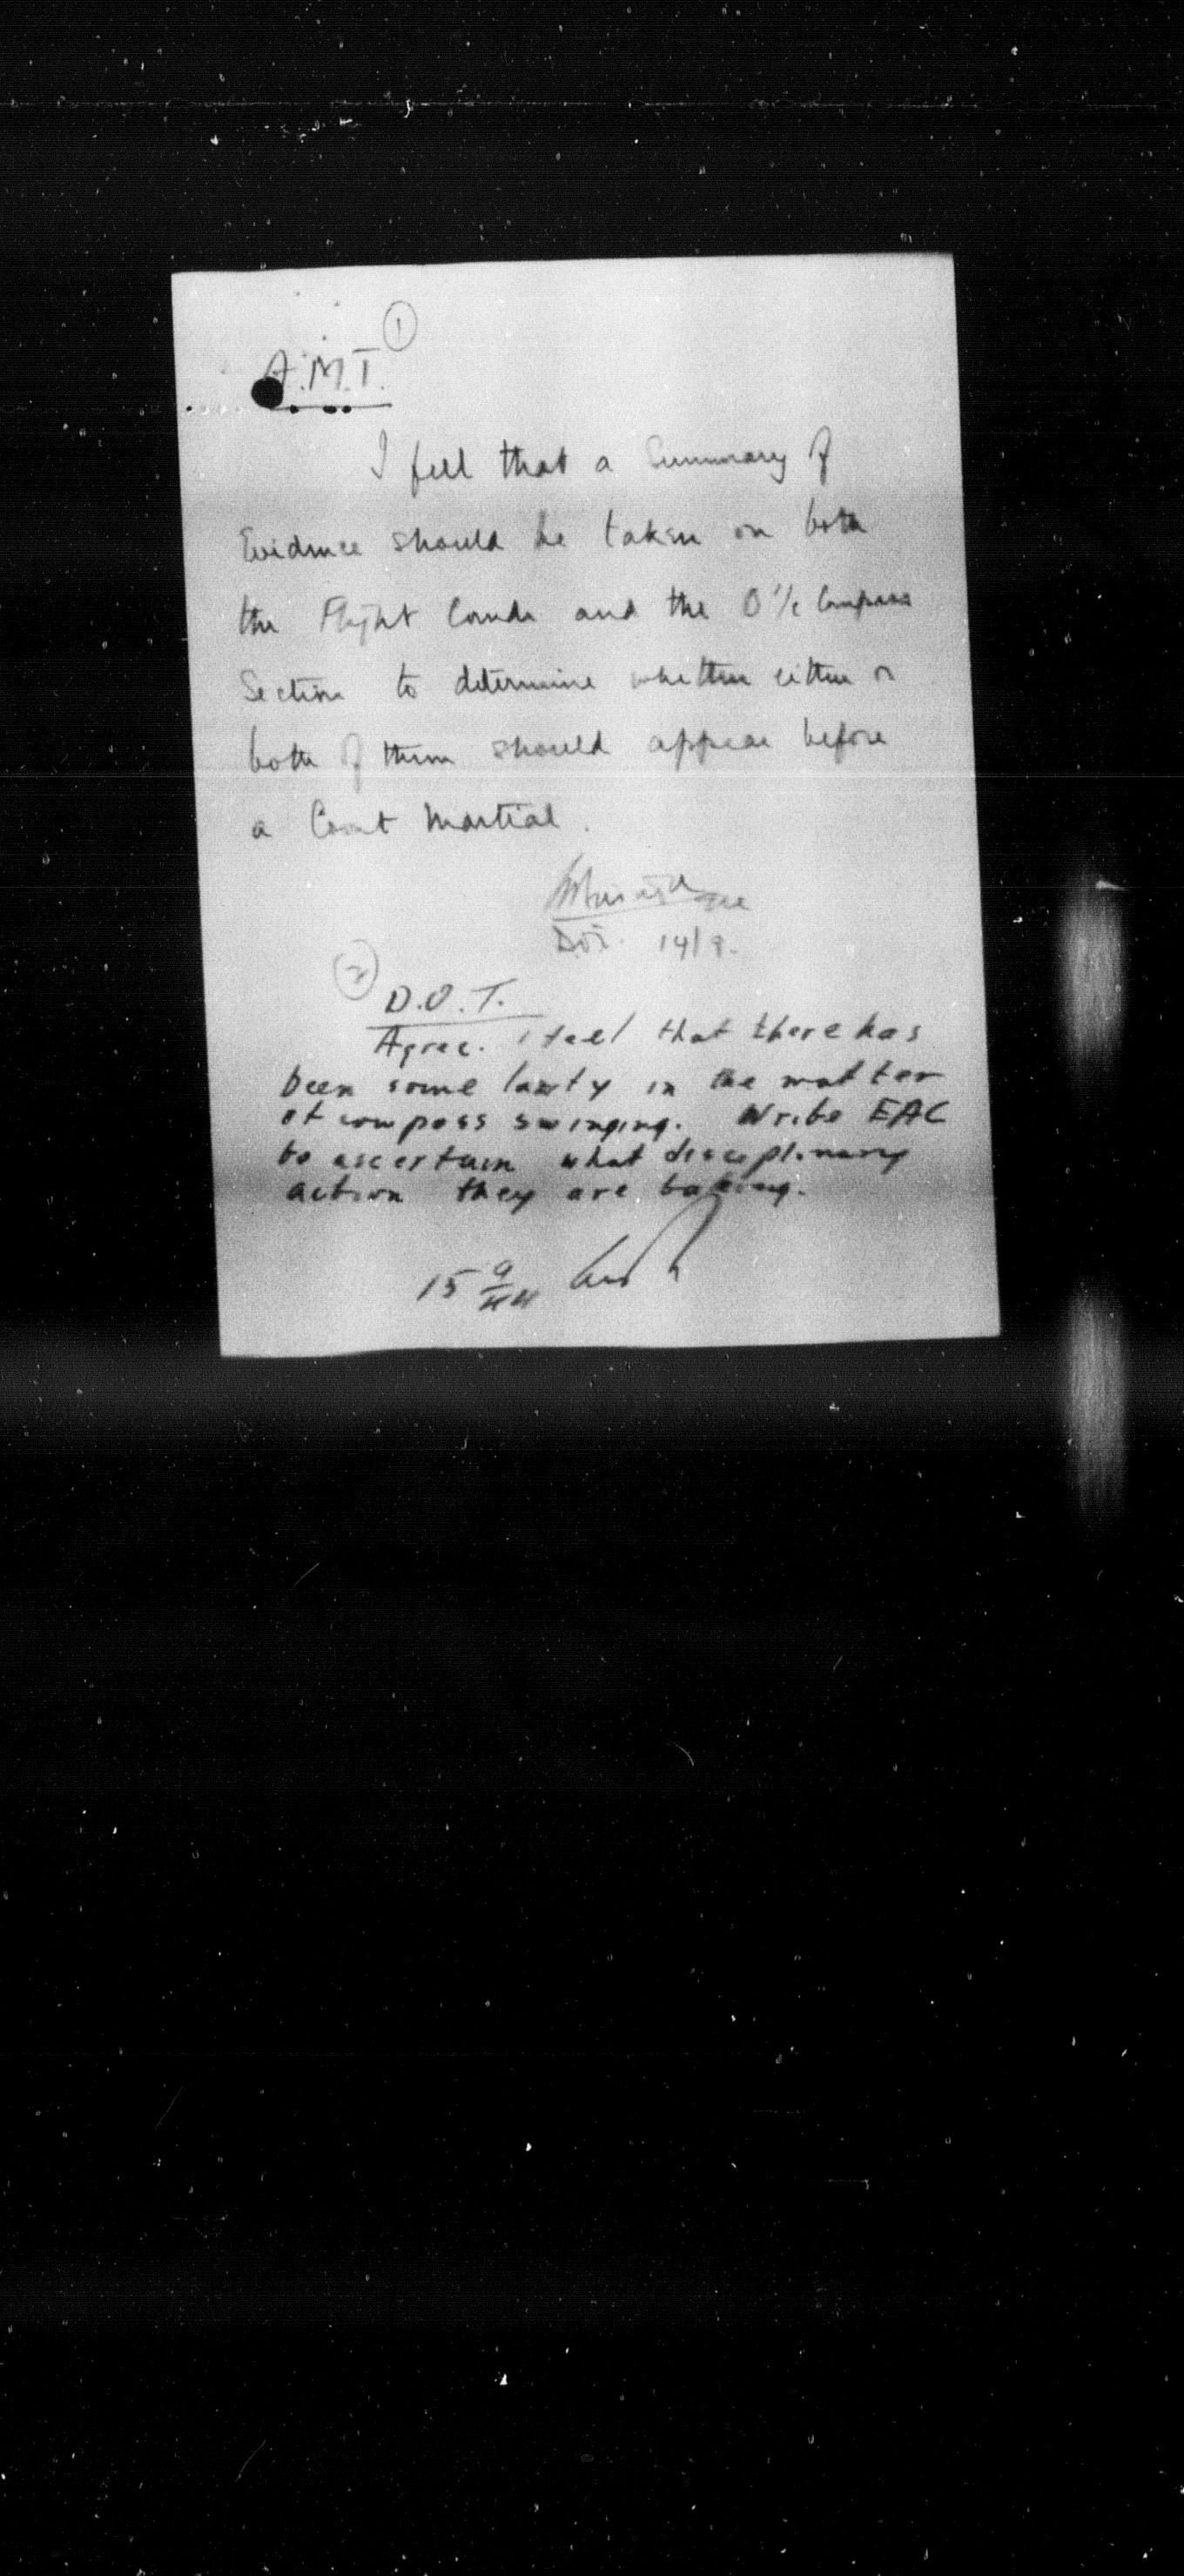 ①
A.M.T.
I feel that a Summary of
Evidence should be taken on both
the Flight Comdr and the O i/c Compass
Section to determine whether either or
both of them should appear before
a Court Martial.
D.O.T. 14/9.
②
D.O.T.
Agree. I feel that there has
been some laxity in the matter
of compass swinging. Write EAC
to ascertain what disciplinary
action they are taking.
15 9/44